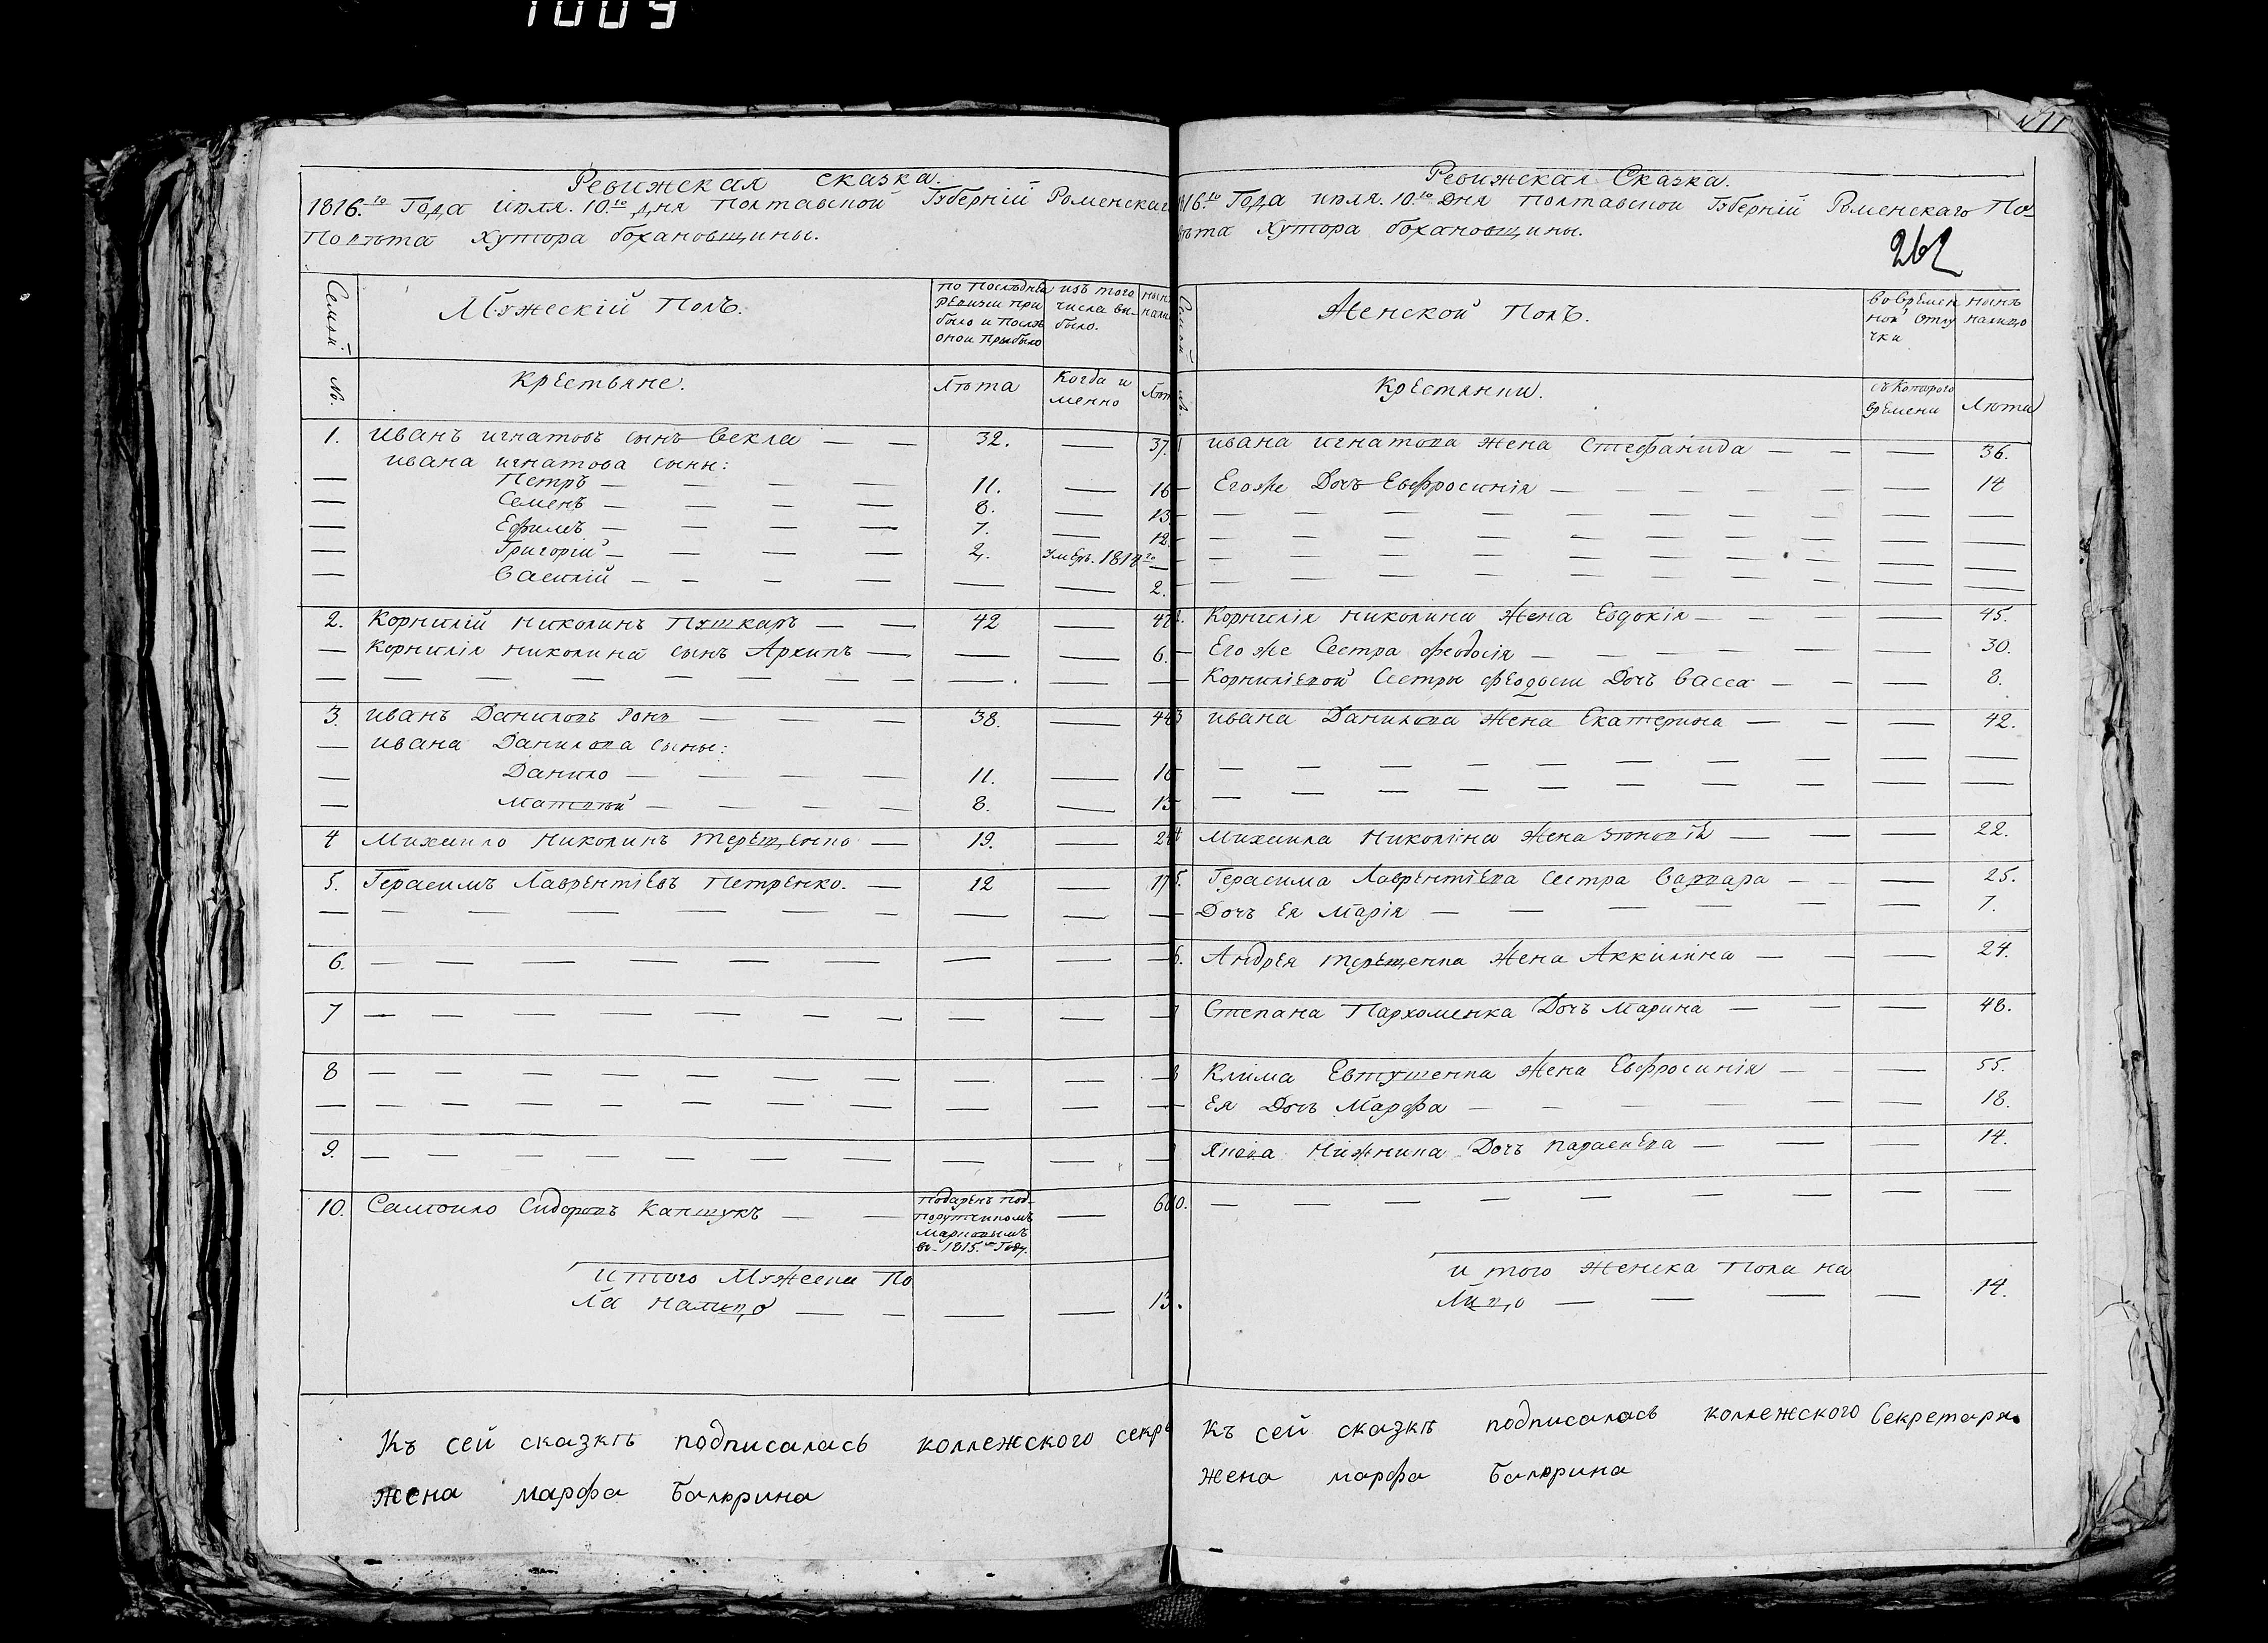 1009
Ревижская сказка.
1816.го Года июля. 10.го дня Полтавской Губерній Роменскаго
Повѣта Хутора бохановщины.
Семьи
Мужескій Полъ.
по Послѣдней
ревизіи при
было и Послѣ
оной Прыбыло
изъ того
числа вы-
было.
нын
нали
№.
крестьяне.
Лѣта
Когда и
менно
Лѣт
1. иванъ игнатовъ сынъ Векла — — 32. — 37.
ивана игнатова сыны:
— Петръ — — — — 11. — 16
— Семенъ — — — — 8. — 13
— Ефимъ — — — — 7. — 12
— Григорій — — — — 2. умеръ. 1812го —
— Василій — — — — — — 2.
2. Корнилій николинъ Пушкаръ — — 42 — 47
— Корнилія николина сынъ Архипъ — — — 6.
— — — — — — — — — — —
3. иванъ Даниловъ Ронъ — — — 38. — 44
— ивана Данилова сыны:
— Данило — — — — 11. — 16
— матвѣй — — — — 8. — 13
4 Михаило Николинъ терещенко — 19. — 24
5. Герасимъ Лаврентіевъ Петренко. — 12 — 17
— — — — — — — — — —
6. — — — — — — — — — —
7 — — — — — — — — — —
8 — — — — — — — — — —
— — — — — — — — — — —
9. — — — — — — — — — —
10. Самоило Сидоровъ Капшукъ — — — 60
Подаренъ под-
поручикомъ
Марковымъ
въ 1815.м Году.
и того Мужеска По
ла налицо — — — — 13.
Къ сей сказкѣ подписалась коллежского секре
жена марфа Балюрина
Ревижская Сказка.
1816.го Года июля. 10.го Дня Полтавской Губерній Роменскаго По-
вѣта Хутора бохановщины.
262
Семьи
Женской Полъ.
во времен
ной отлу
чки
нынѣ
налицо
№.
Крестянки.
съ Которого
времени
Лѣта
1 ивана игнатова жена Стефанида — — — 36.
— Егоже Дочъ Евфросинія — — — — — — 14
— — — — — — — — — — —
— — — — — — — — — — —
— — — — — — — — — — —
— — — — — — — — — — —
2. Корнилія николина Жена Евдокія — — — — 45.
— Его же Сестра феодосія — — — — — — 30.
— Корниліевой Сестры феодосіи Дочъ Васса — — — 8.
3 ивана Данилова Жена Екатерина — — — 42.
— — — — — — — — — — —
— — — — — — — — — — —
4 Михаила Николіна Жена — — — 22.
5. Герасима Лаврентіева Сестра Варвара — — — 25.
— Дочъ Ея Марія — — — — — — 7.
6. Андрея терещенка Жена Аккилина — — — 24.
7 Степана Пархоменка Дочъ Марина — — — 48.
8 Кліма Евтушенка Жена Евфросинія — — — 55.
— Ея Дочъ Марфа — — — — — — 18.
9 Якова Ніжника Дочъ параскева — — — 14.
10. — — — — — — — — —
и того женска Пола на
Лицо — — — — 14.
Къ сей сказкѣ подписалась коллежского Секретаря.
жена марфа Балюрина